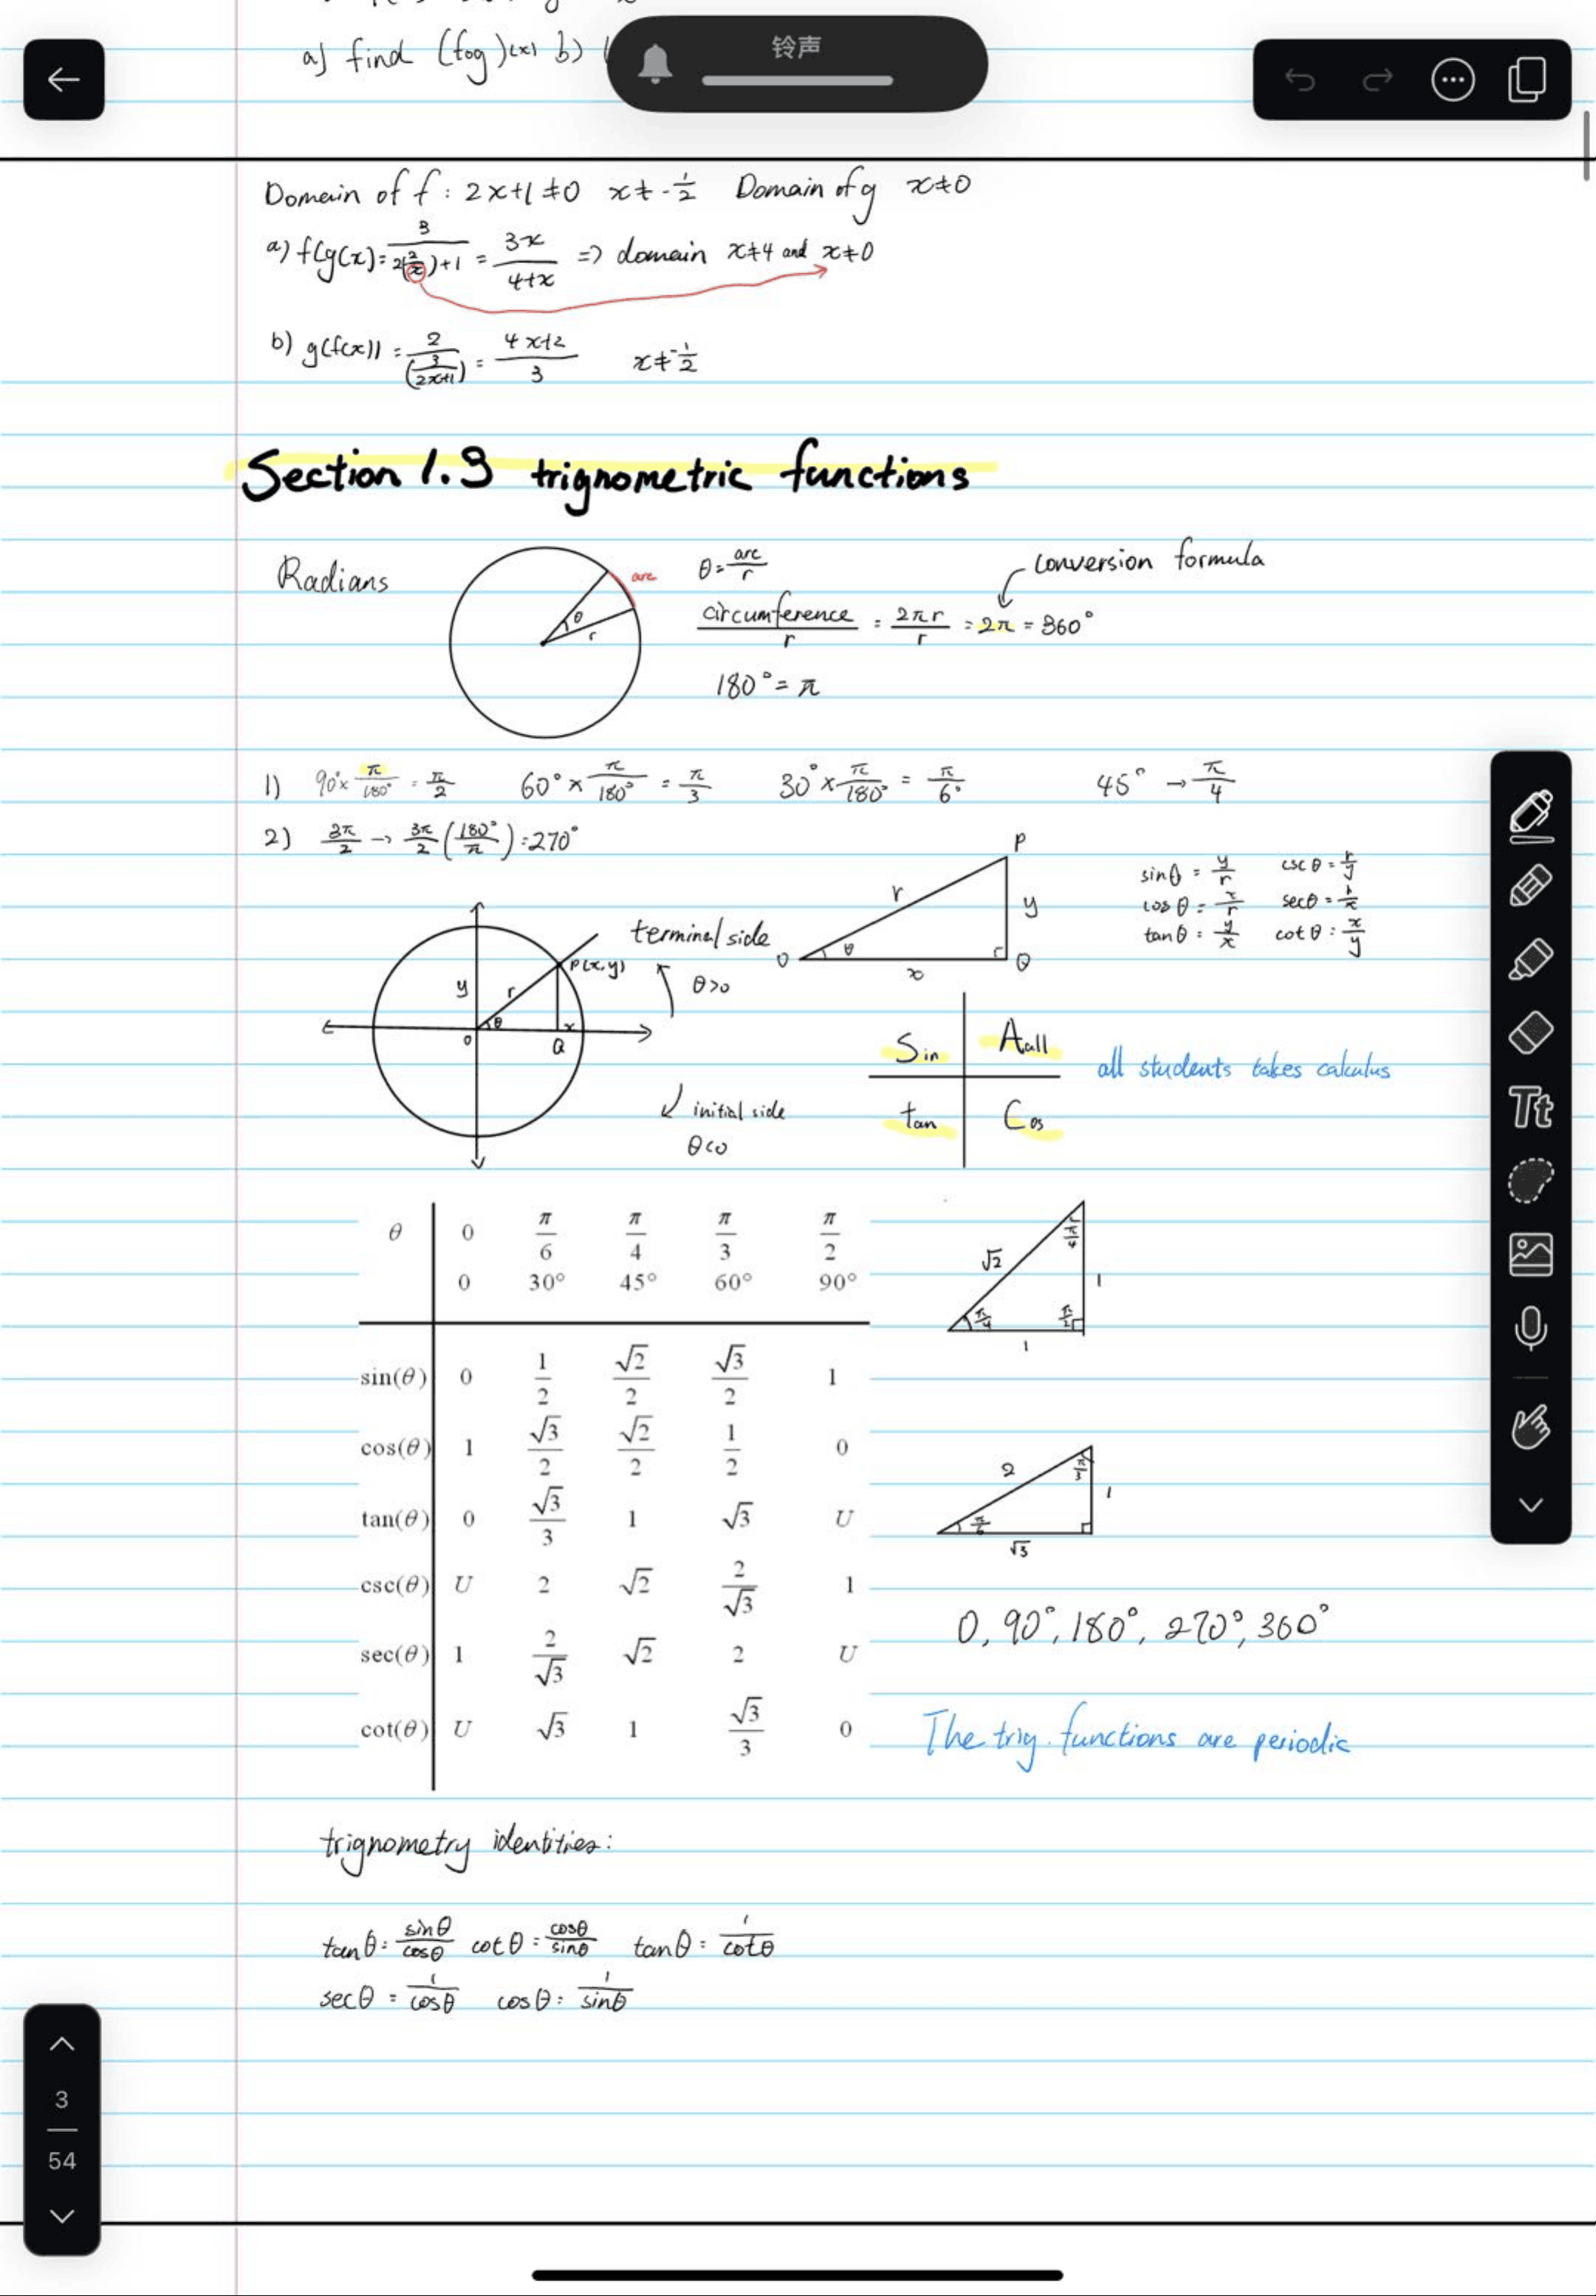 a) find (fog)(x) b)
铃声
Domain of f : 2x+1≠0 x≠-1/2 Domain of g x≠0
a) f(g(x)= 3/(2(2/x)+1) = 3x/(4+x) => domain x≠4 and x≠0
b) g(f(x)) = 2/(3/(2x+1)) = (4x+2)/3 x≠-1/2
Section 1.3 trignometric functions
Radians
arc
θ
r
θ=arc/r
conversion formula
circumference/r = 2πr/r = 2π = 360°
180°=π
1) 90°×π/180° = π/2 60°×π/180° = π/3 30°×π/180° = π/6 45° → π/4
2) 3π/2 → 3π/2(180°/π)=270°
P
r
y
O θ x Q
sinθ = y/r cscθ = r/y
cosθ = x/r secθ = r/x
tanθ = y/x cotθ = x/y
terminal side
P(x,y)
θ>0
y r
O θ x
Q
initial side
θ<0
Sin Aall
tan Cos
all students takes calculus
θ 0 π/6 π/4 π/3 π/2
0 30° 45° 60° 90°
sin(θ) 0 1/2 √2/2 √3/2 1
cos(θ) 1 √3/2 √2/2 1/2 0
tan(θ) 0 √3/3 1 √3 U
csc(θ) U 2 √2 2/√3 1
sec(θ) 1 2/√3 √2 2 U
cot(θ) U √3 1 √3/3 0
√2 π/4 1
π/4 π/2
1
2 π/3 1
π/6
√3
0, 90°, 180°, 270°, 360°
The trig. functions are periodic
trignometry identities:
tanθ = sinθ/cosθ cotθ = cosθ/sinθ tanθ = 1/cotθ
secθ = 1/cosθ cosθ = 1/sinθ
Tt
3
54